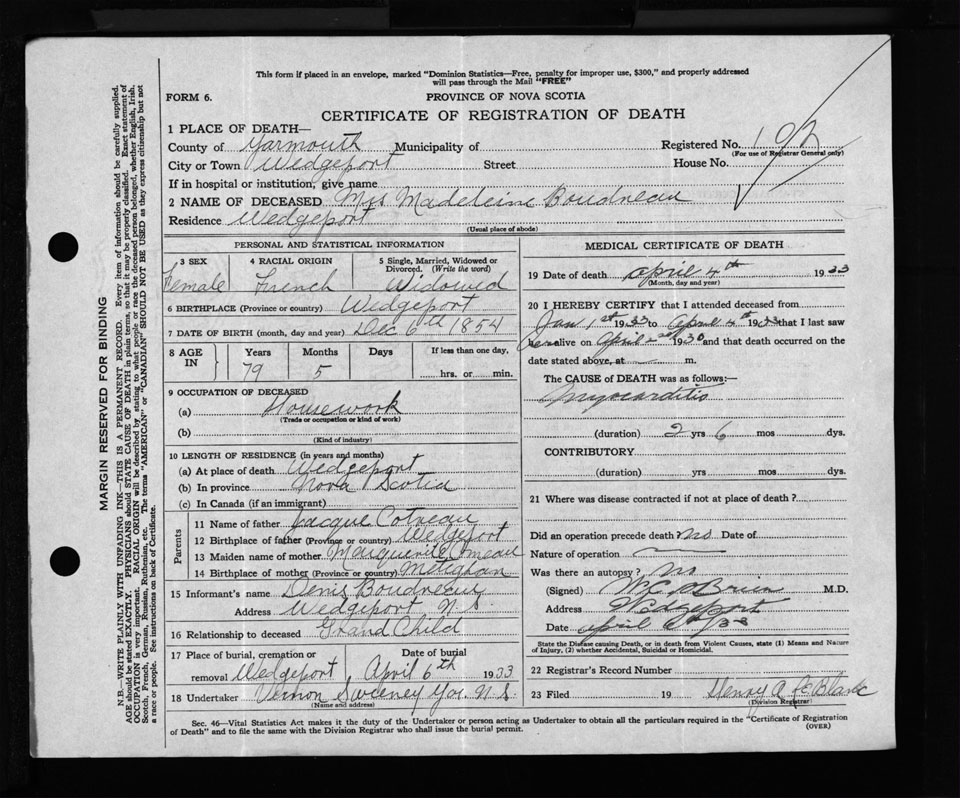 This form if placed in an envelope, marked "Dominion Statistics—Free, penalty for improper use, $300," and properly addressed
will pass through the Mail "FREE"
FORM 6.
PROVINCE OF NOVA SCOTIA
CERTIFICATE OF REGISTRATION OF DEATH
1 PLACE OF DEATH—
County of Yarmouth Municipality of Registered No. 192
(For use of Registrar General only)
City or Town Wedgeport Street House No.
If in hospital or institution, give name
2 NAME OF DECEASED Mrs Madeleine Boudreau
Residence Wedgeport
(Usual place of abode)
PERSONAL AND STATISTICAL INFORMATION
3 SEX 4 RACIAL ORIGIN 5 Single, Married, Widowed or
Divorced. (Write the word)
Female French Widowed
6 BIRTHPLACE (Province or country) Wedgeport
7 DATE OF BIRTH (month, day and year) Dec 6th 1854
8 AGE IN Years Months Days If less than one day,
79 5 hrs. or min.
9 OCCUPATION OF DECEASED
(a) Housework
(Trade or occupation or kind of work)
(b)
(Kind of industry)
10 LENGTH OF RESIDENCE (in years and months)
(a) At place of death Wedgeport
(b) In province Nova Scotia
(c) In Canada (if an immigrant)
Parents
11 Name of father Jacque Cotreau
12 Birthplace of father (Province or country) Wedgeport
13 Maiden name of mother Marguerite Comeau
14 Birthplace of mother (Province or country) Meteghan
15 Informant's name Denis Boudreau
Address Wedgeport N.S.
16 Relationship to deceased Grand Child
17 Place of burial, cremation or Date of burial
removal Wedgeport, April 6th 1933
18 Undertaker Vernon Sweeney Yar. N.S.
(Name and address)
MEDICAL CERTIFICATE OF DEATH
19 Date of death April 4th 1933
(Month, day and year)
20 I HEREBY CERTIFY that I attended deceased from
Jan 1st 1933 to April 4th 1933 that I last saw
her alive on April 2nd 1930 and that death occurred on the
date stated above, at m.
The CAUSE of DEATH was as follows:—
Myocarditis
(duration) 2 yrs 6 mos dys.
CONTRIBUTORY
(duration) yrs mos dys.
21 Where was disease contracted if not at place of death?
Did an operation precede death no Date of
Nature of operation
Was there an autopsy? no
(Signed) O'Brien M.D.
Address Wedgeport
Date April
State the Disease causing Death, or in death from Violent Causes, state (1) Means and Nature
of Injury, (2) whether Accidental, Suicidal or Homicidal.
22 Registrar's Record Number
23 Filed 19 Henry A LeBlanc
(Division Registrar)
Sec. 46—Vital Statistics Act makes it the duty of the Undertaker or person acting as Undertaker to obtain all the particulars required in the "Certificate of Registration
of Death" and to file the same with the Division Registrar who shall issue the burial permit.
(OVER)
MARGIN RESERVED FOR BINDING
N.B.—WRITE PLAINLY WITH UNFADING INK—THIS IS A PERMANENT RECORD. Every item of information should be carefully supplied.
AGE should be stated EXACTLY. PHYSICIANS should STATE CAUSE OF DEATH in plain terms, so that it may be properly classified. Exact statement of
OCCUPATION is very important. RACIAL ORIGIN will be described by stating to what people or race the deceased person belonged, whether English, Irish,
Scotch, French, German, Russian, Ruthenian, etc. The terms "AMERICAN" or "CANADIAN" SHOULD NOT BE USED as they express citizenship but not
a race or people. See instructions on back of Certificate.